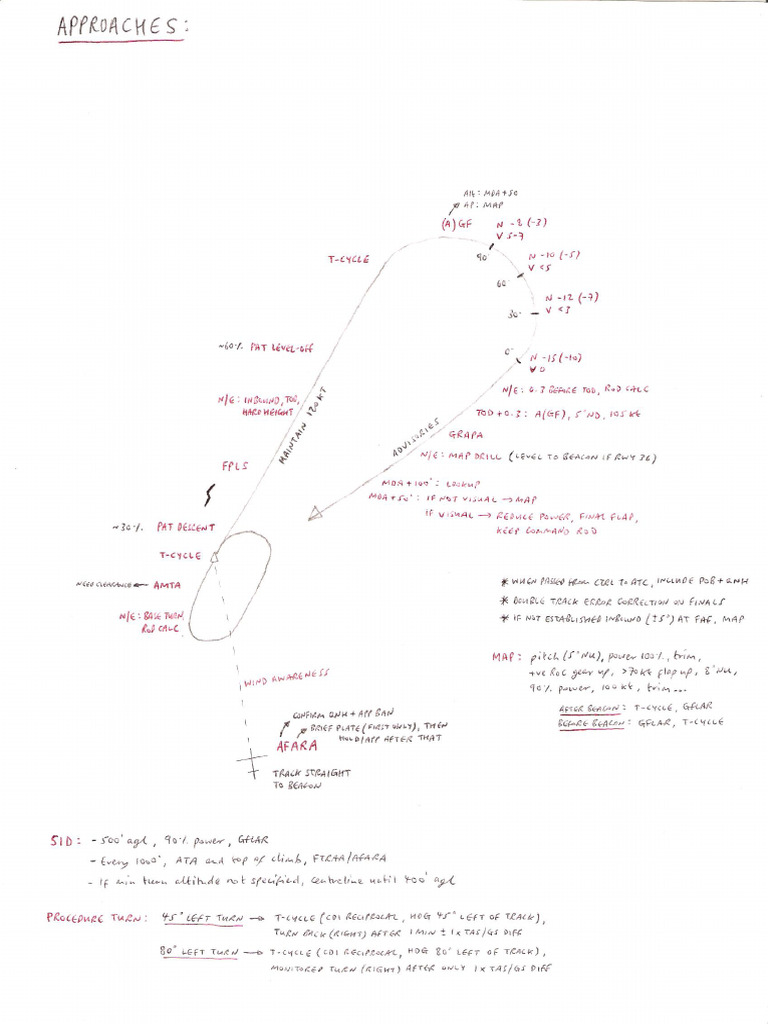 APPROACHES:
Alt: MDA+50
AP: MAP
(A) GF
N -2 (-3)
V 5-7
T-CYCLE
90°
N -10 (-5)
V <5
60°
N -12 (-7)
V <3
30°
~60% PAT LEVEL-OFF
0°
N -15 (-10)
V 0
N/E: INBOUND, TOD,
HARD HEIGHT
MAINTAIN 120 KT
N/E: 0.3 BEFORE TOD, ROD CALC
TOD + 0.3: A(GF), 5°ND, 105 kt
ADVISORIES
GRAPA
N/E: MAP DRILL (LEVEL TO BEACON IF RWY 36)
FPLS
MDA+100': LOOKUP
MDA+50': IF NOT VISUAL → MAP
IF VISUAL → REDUCE POWER, FINAL FLAP,
KEEP COMMAND ROD
~30% PAT DESCENT
T-CYCLE
NEED CLEARANCE ← AMTA
N/E: BASE TURN,
ROD CALC
* WHEN PASSED FROM CTRL TO ATC, INCLUDE POB + QNH
* DOUBLE TRACK ERROR CORRECTION ON FINALS
* IF NOT ESTABLISHED INBOUND (±5°) AT FAF, MAP
MAP: pitch (5°NU), power 100%, trim,
+ve RoC gear up, >70kt flap up, 8°NU,
90% power, 100 kt, trim...
AFTER BEACON: T-CYCLE, GFLAR
BEFORE BEACON: GFLAR, T-CYCLE
WIND AWARENESS
CONFIRM QNH + APP BAN
BRIEF PLATE (FIRST ONLY), THEN
HOLD/APP AFTER THAT
AFARA
TRACK STRAIGHT
TO BEACON
SID: - 500' agl, 90% power, GFLAR
- Every 1000', ATA and top of climb, FTRAA/AFARA
- If min turn altitude not specified, centreline until 400' agl
PROCEDURE TURN: 45° LEFT TURN → T-CYCLE (CDI RECIPROCAL, HDG 45° LEFT OF TRACK),
TURN BACK (RIGHT) AFTER 1 MIN ± 1 x TAS/GS DIFF
80° LEFT TURN → T-CYCLE (CDI RECIPROCAL, HDG 80° LEFT OF TRACK),
MONITORED TURN (RIGHT) AFTER ONLY 1 x TAS/GS DIFF